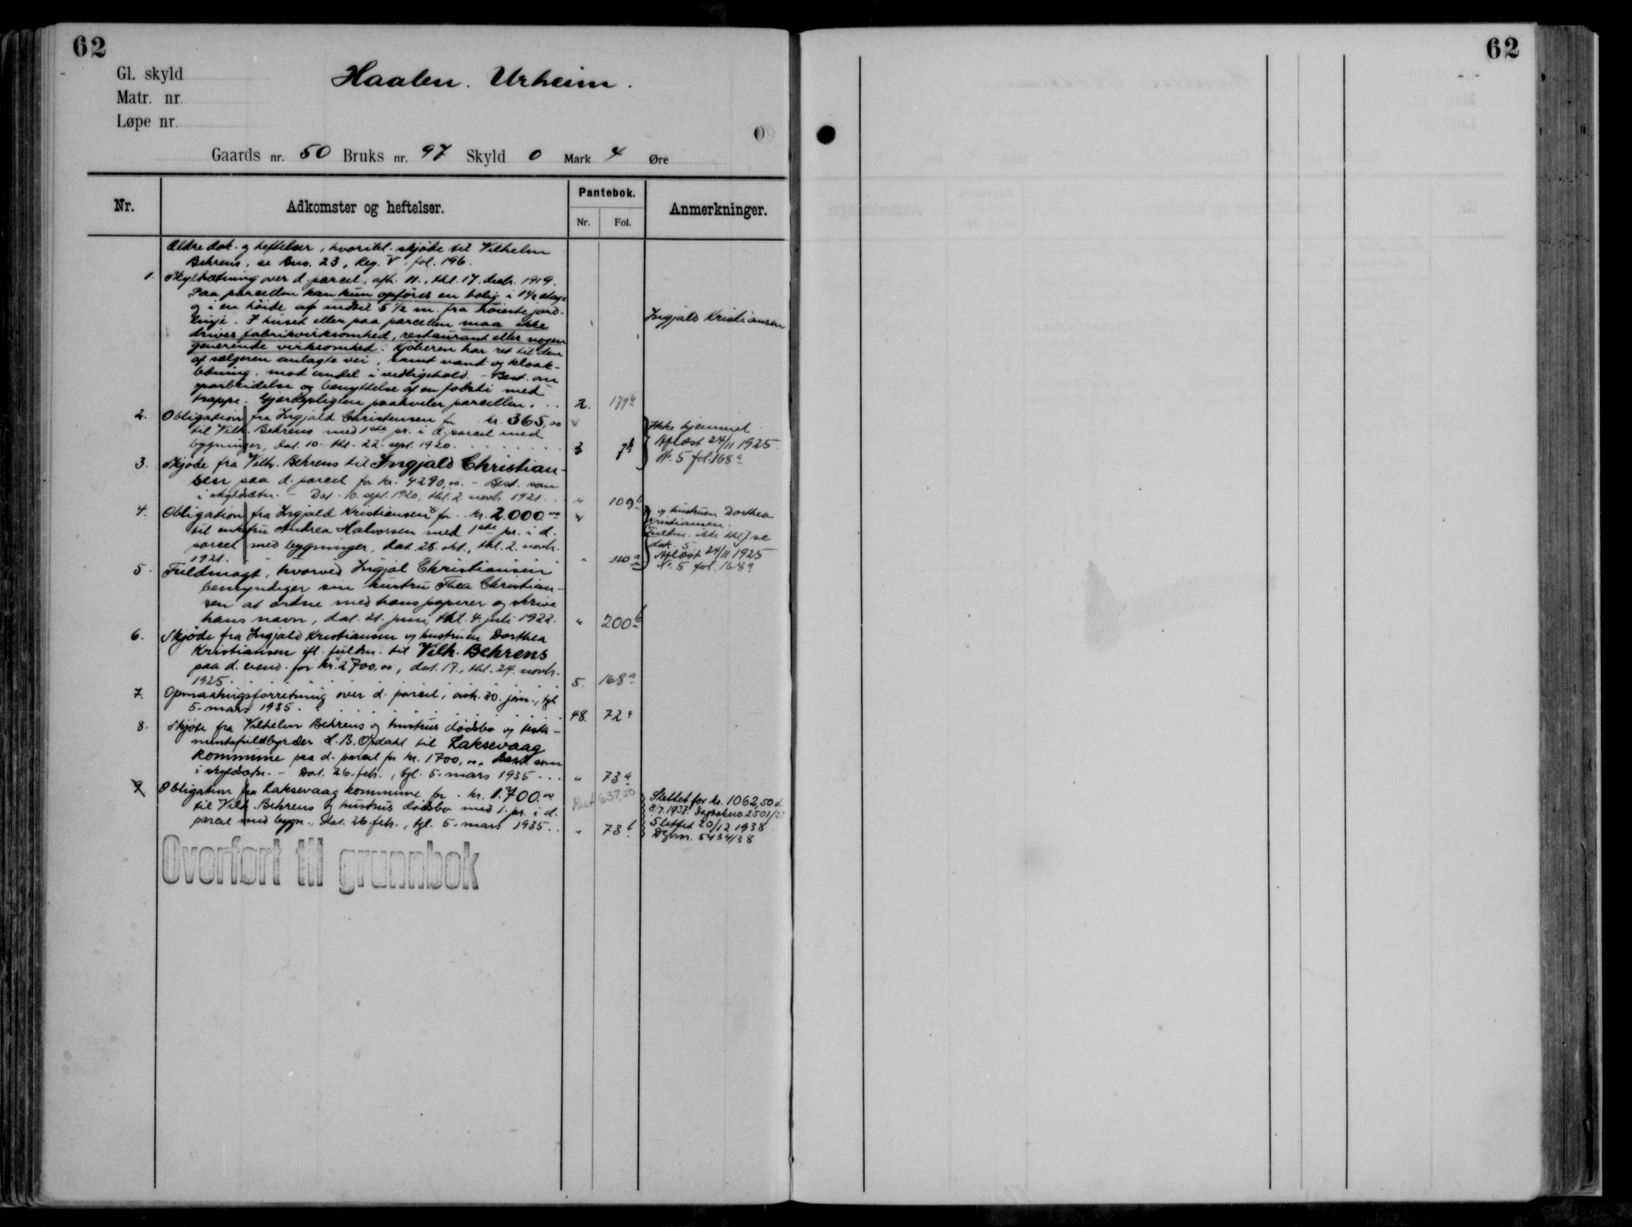 62
Gl. skyld
Matr. nr.
Løpe nr.
Haalen. Urheim.
Gaards nr. 50 Bruks nr. 97 Skyld 0 Mark 4 Øre
Nr.
Adkomster og heftelser.
Pantebok.
Nr. Fol.
Anmerkninger.
Ældre dok. og heftelser, hvoribl. skjøde til Vilhelm
Behrens, se Bno. 23, Reg. V fol. 196.
1. Skyldsætning over d. parcel, afh. 11., thl. 17. decbr. 1919.
Paa parcellen kan kun opføres en bolig i 1½ etage
og i en høide af indtil 5½ m. fra høieste jord-
linje. I huset eller paa parcellen maa ikke
drives fabrikvirksomhed, restaurant eller nogen
generende virksomhed. Kjøberen har ret til den
af sælgeren anlagte vei, samt vand og kloak-
ledning, mod andel i vedligehold. – Best. om
oparbeidelse og benyttelse af en fortei med
trappe. Gjerdepligten paahviler parcellen. . . 2. 179
Ingjald Kristiansen
2. Obligation fra Ingjald Christensen for kr. 365,00
til Vilh. Behrens med 1ste pr. i d. parcel med
bygninger, dat. 10. thl. 22. sept. 1920. 3 7
Ikke hjemmel
Aflæst 24/11 1925.
N. 5 fol. 168a
3. Skjøde fra Vilh. Behrens til Ingjald Christian-
sen paa d. parcel for kr. 4290,00. – Best. som
i skyldsætn. – Dat. 10. sept. 1920, thl. 2. novbr. 1921. . " 109
4. Obligation fra Ingjald Kristiansen for kr. 2.000.00
til enkefru Andrea Halvorsen med 1ste pr. i d.
parcel med bygninger, dat. 28. okt., thl. 2. novbr.
1921. " 110a
og hustruen Dorthea
Kristiansen.
Fuldm. ikke thl.) se
dok. 5
Aflæst 24/11 1925
N. 5 fol. 168a
5. Fuldmagt, hvorved Ingjal Christiansen
bemyndiger sin hustru Thea Christian-
sen at ordne med hans papirer og skrive
hans navn, dat. 21. juni, thl. 4. juli 1922. " 200b
6. Skjøde fra Ingjald Kristiansen og hustruen Dorthea
Kristiansen ifl. fuldm. til Vilh. Behrens
paa d. eiend. for kr. 2700,00, dat. 17., thl. 24. novbr.
1925. 5. 168a
7. Opmaalingsforretning over d. parcel, avh. 30. jan., tgl.
5. mars 1935. 48. 72a
8. Skjøte fra Vilhelm Behrens og hustrus dødsbo og testa-
mentsfuldbyrder H. B. Opdahl til Laksevaag
kommune paa d. parcel for kr. 1700,00. Best. som
i skyldsetn. – Dat. 26. febr., tgl. 5. mars 1935. . . " 73a
9. Obligation fra Laksevaag kommune for kr. 1.700.00
til Vilh. Behrens og hustrus dødsbo med 1. pr. i d.
parcel med bygn., dat. 26. febr., tgl. 5. mars 1935. . " 73b
Rest 637,50
Slettet for kr. 1062,50 d.
8/7. 1937. Dagbokno 2501/37
Slettet 20/12 1938
Dgbnr. 5434/38
Overført til grunnbok
62